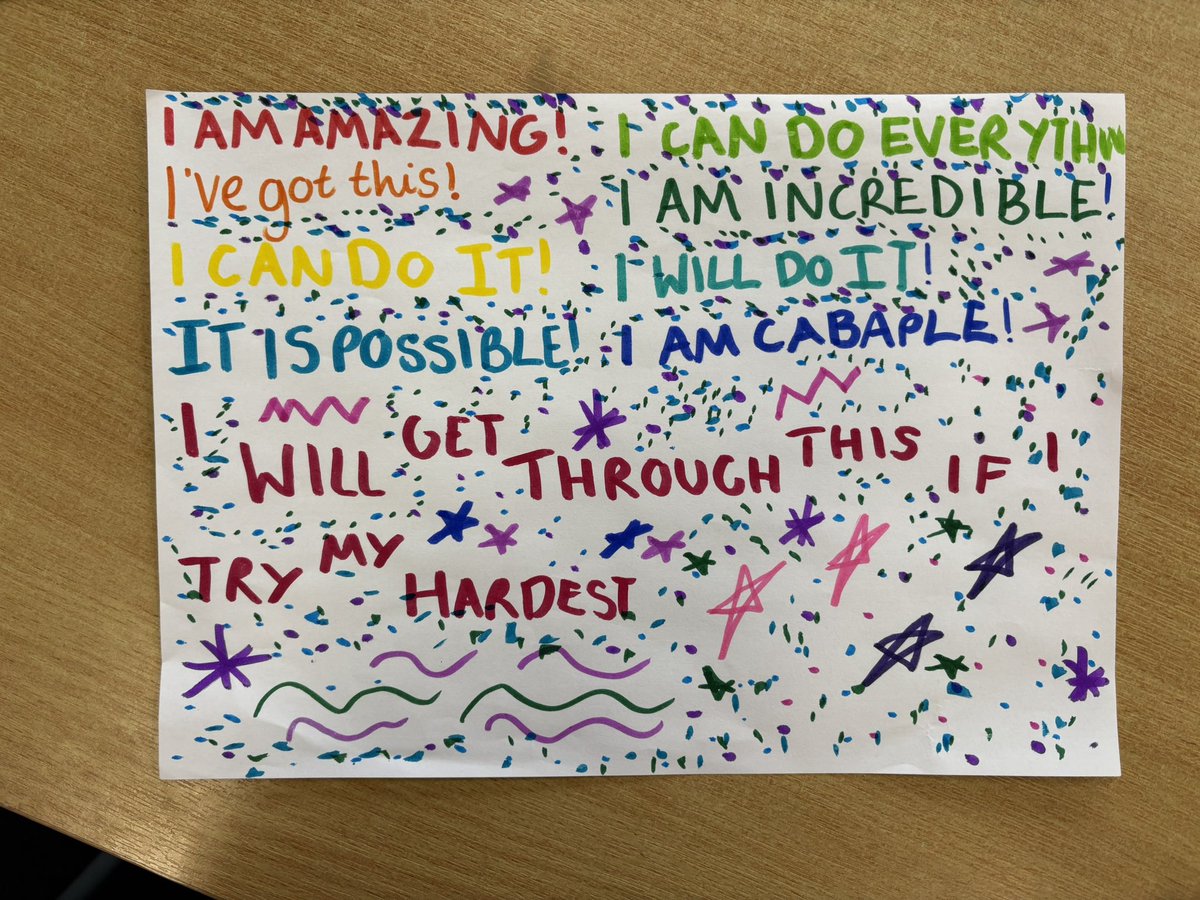 I AM AMAZING!
I've got this!
I CAN DO IT!
IT IS POSSIBLE!
I CAN DO EVERYTHIN
I AM INCREDIBLE!
I WILL DO IT!
I AM CABAPLE!
I WILL GET THROUGH THIS IF I
TRY MY HARDEST